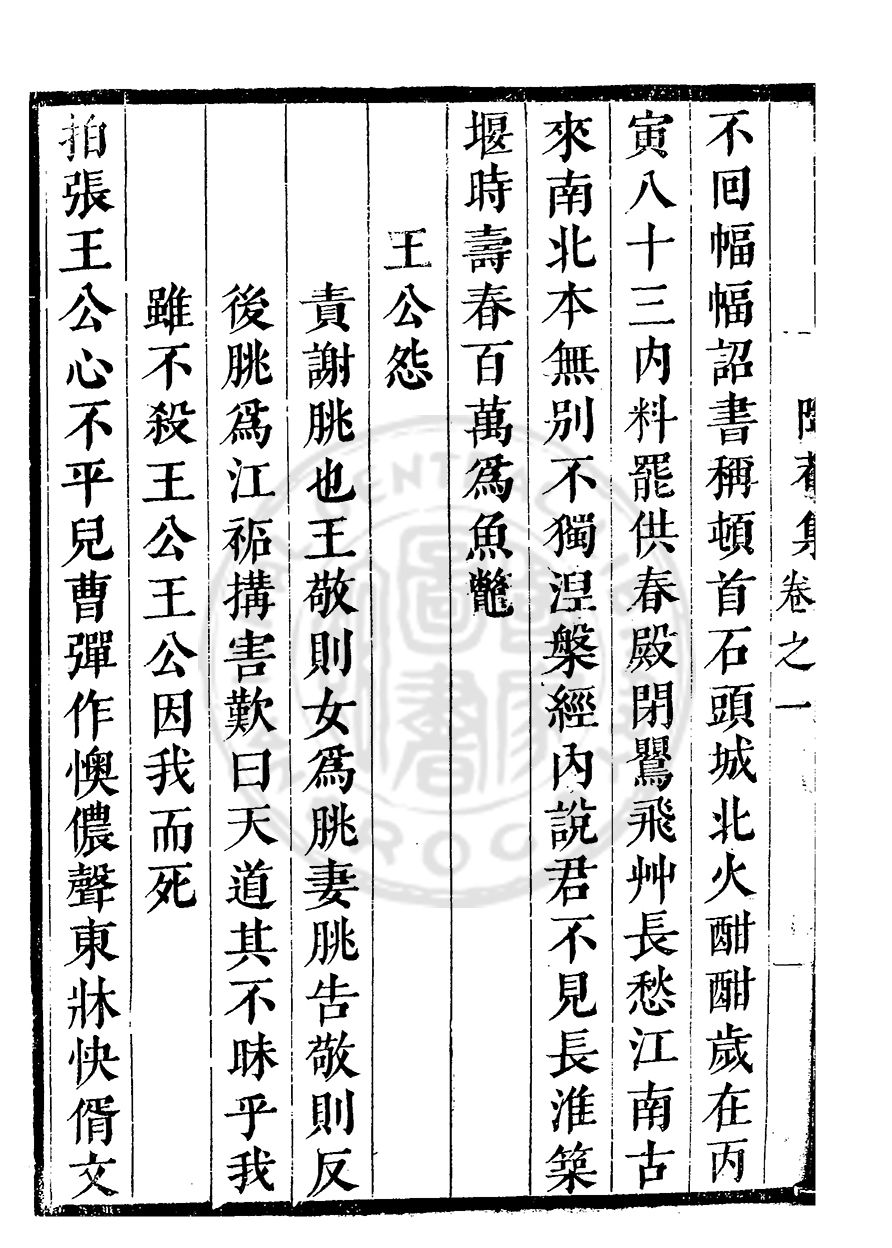 集卷之一
不囘幅幅詔書稱頓首石頭城北火酣酣歲在丙
寅八十三内料罷供春殿閉鸎飛艸長愁江南古
來南北本無別不獨涅槃經內說君不見長淮築
堰時壽春百萬爲魚鼈
王公怨
責謝脁也王敬則女爲脁妻脁告敬則反
後脁爲江祏搆害歎曰天道其不昧乎我
雖不殺王公王公因我而死
拍張王公心不平兒曹彈作懊儂聲東牀快偦文